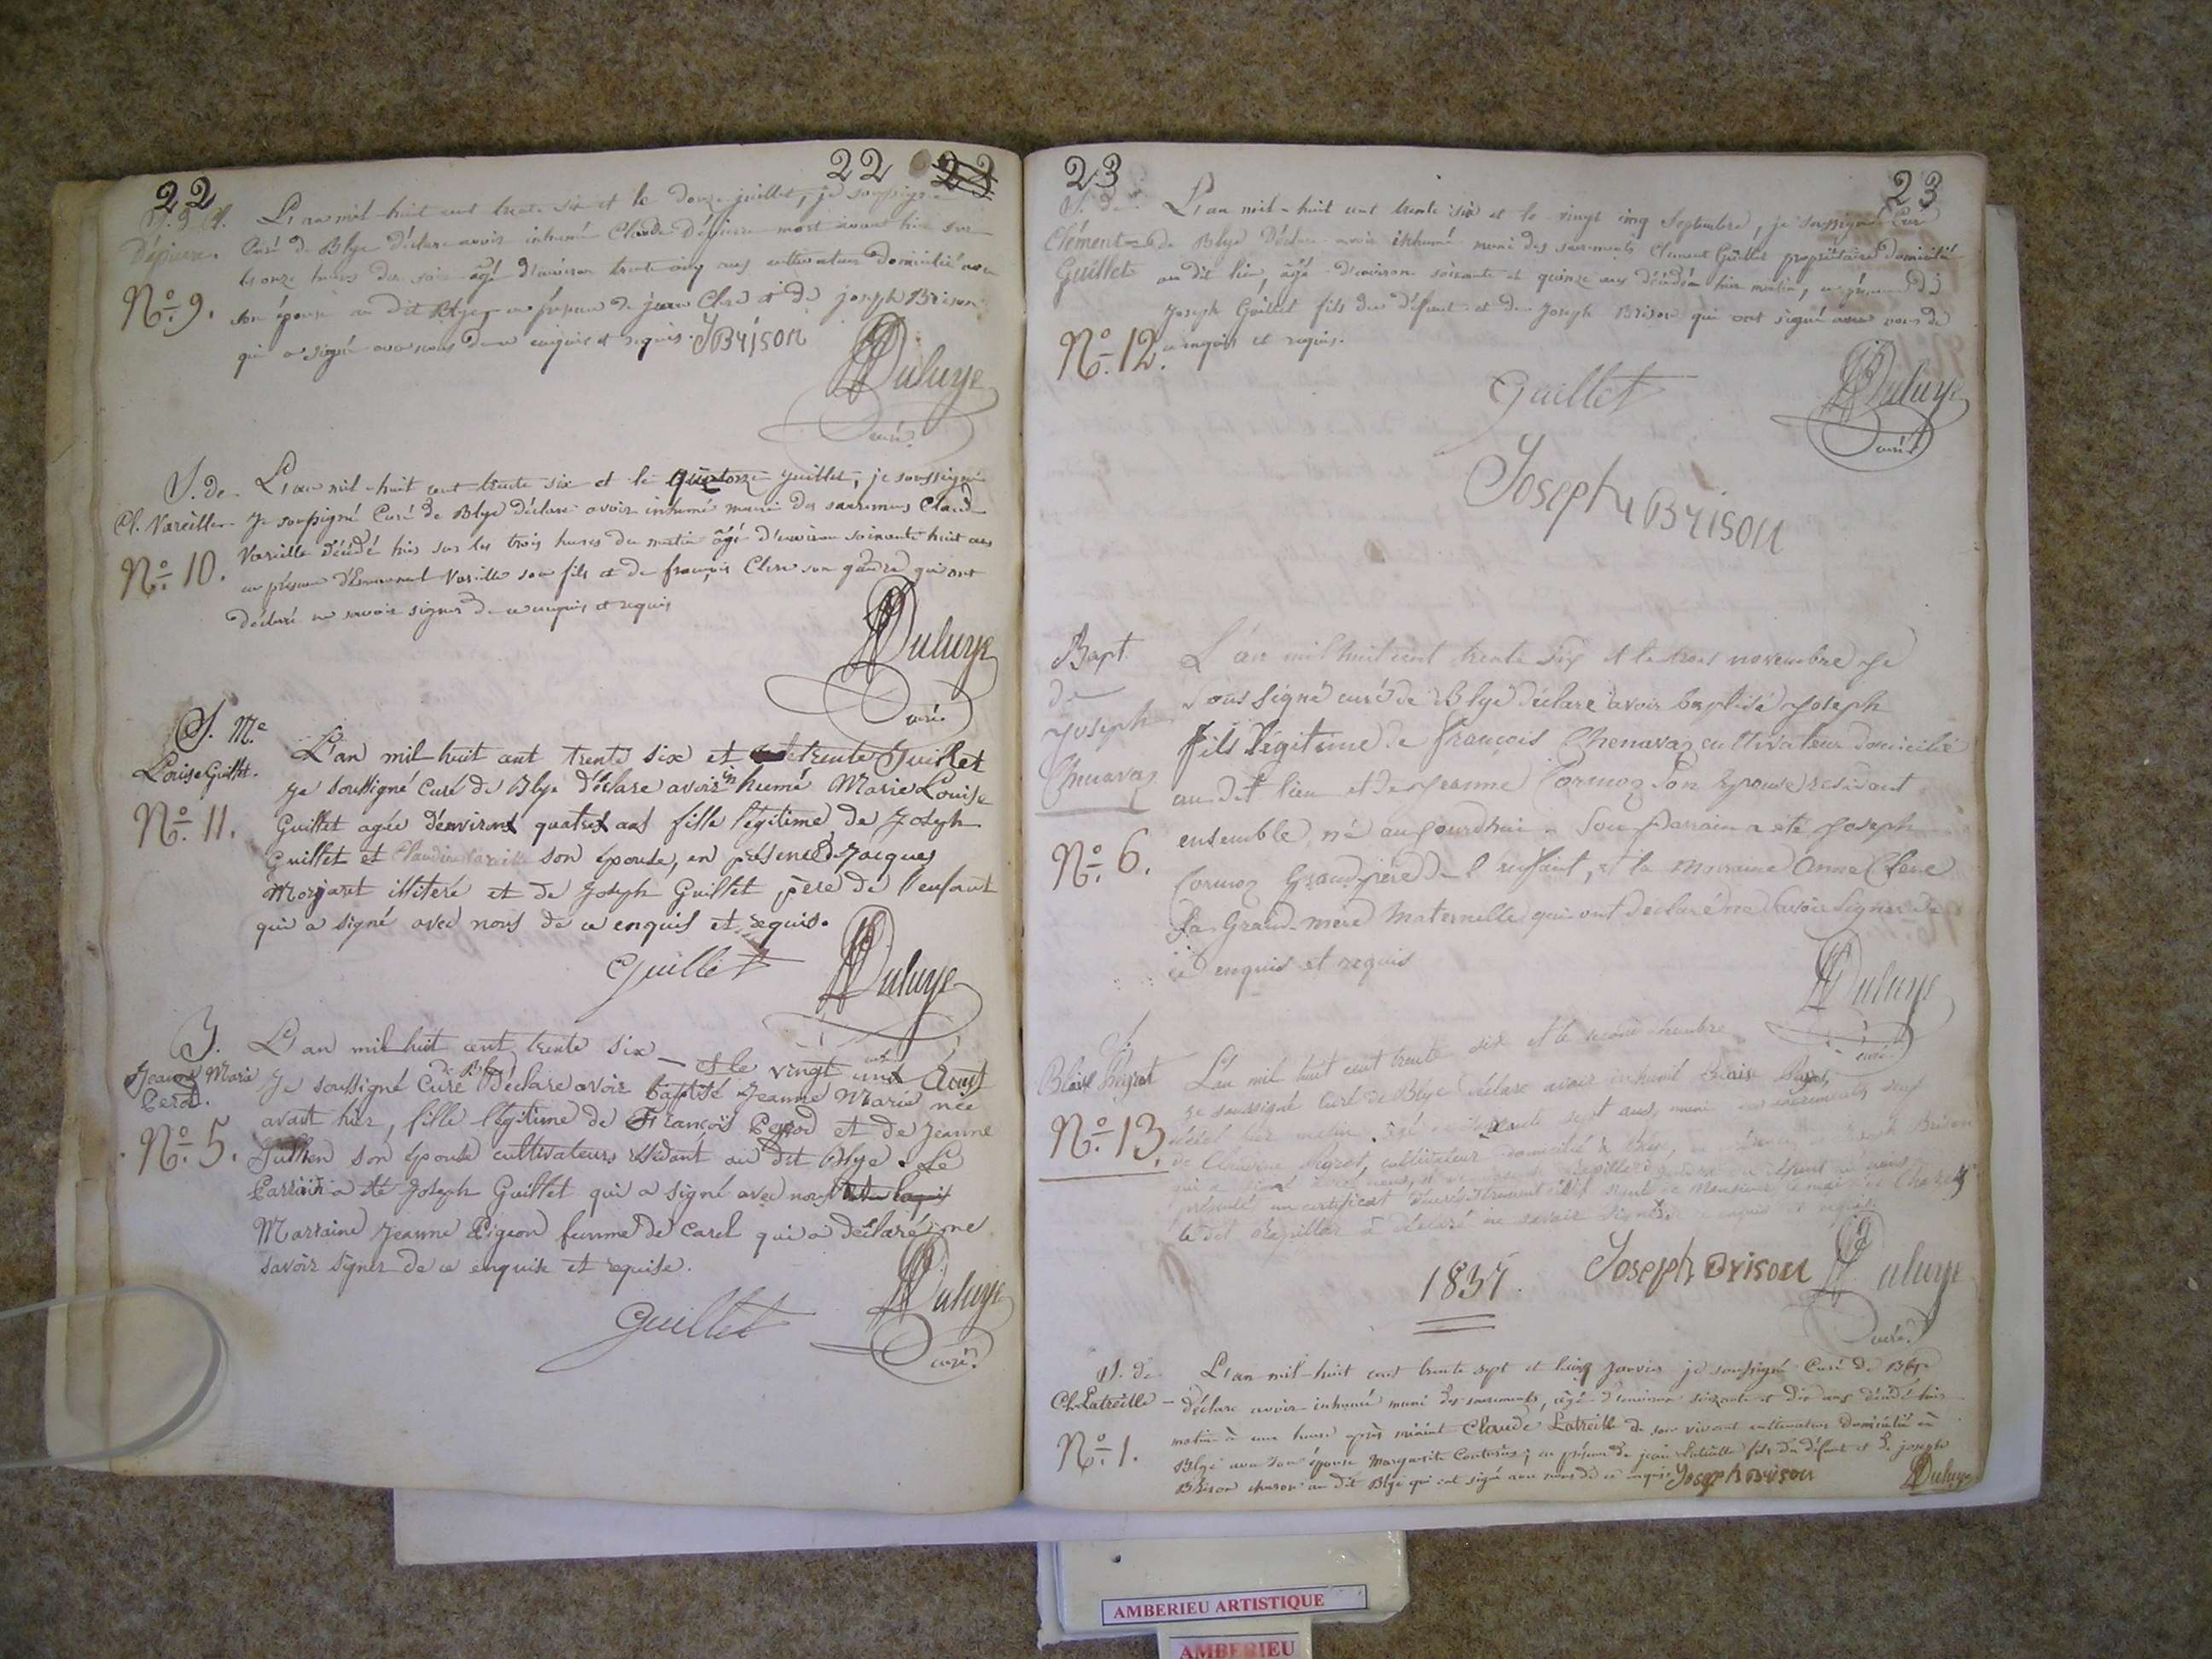 22
22
S. d. Cl.
Dépierre.
N° 9.
L'an mil-huit cent trente six et le douze juillet, je soussigné
Curé de Blye déclare avoir inhumé Claude Dépierre mort avant hier sur
les onze heures du soir âgé d'environ trente cinq ans cultivateur domicilié avec
son épouse au dit Blye en présence de jean Clere et de joseph Brison
qui a signé avec nous de ce enquis et requis. JBrison
Duluye
curé.
S. de
Cl. Vareille
N° 10.
L'an mil-huit cent trente six et le quatorze juillet, je soussigné
je soussigné Curé de Blye déclare avoir inhumé muni des sacremens Claude
Vareille décédé hier sur les trois heures du matin âgé d'environ soixante huit ans
en présence d'Emmanuel Vareille son fils et de françois Clere son gendre qui ont
déclaré ne savoir signer de ce enquis et requis
Duluye
curé.
S. Me
Louise Guillet.
N° 11.
L'an mil huit cent trente six et le trente Juillet
je soussigné Curé de Blye déclare avoir inhumé Marie Louise
Guillet agée d'environ quatre ans fille légitime de Joseph
Guillet et Claudine Vareille son épouse, en présence de Jacques
Morjaret illiteré et de Joseph Guillet père de l'enfant
qui a signé avec nous de ce enquis et requis.
Guillet
Duluye
Jeanne Marie
Perod.
N° 5.
L'an mil huit cent trente six et le vingt un Août
Je soussigné Curé déclare avoir baptisé Jeanne Marie née
avant hier, fille légitime de François Perod et de Jeanne
Juillien son épouse cultivateurs résidant au dit Blye. Le
Parrain a été Joseph Guillet qui a signé avec nous
Marraine Jeanne Pigeon femme de Carel qui a déclaré ne
savoir signer de ce enquise et requise.
Guillet
Duluye
curé.
23
23
S. de
Clément
Guillet
N° 12.
L'an mil-huit cent trente six et le vingt cinq Septembre, je soussigné Curé
de Blye Déclare avoir inhumé muni des sacrements Clement Guillet propriétaire domicilié
au dit lieu, âgé d'environ soixante et quinze ans décédé hier matin, en présence de
Joseph Guillet fils du défunt et de Joseph Brison qui ont signé avec nous de
ce enquis et requis.
Guillet
Duluye
curé
Joseph Brison
Bapt.
de
Joseph
Chenavaz
N° 6.
L'an mil huit cent trente six et le trois novembre je
soussigné curé de Blye déclare avoir baptisé Joseph
fils légitime de françois Chenavaz cultivateur domicilié
au dit lieu et de Jeanne Cormoz son épouse résidant
ensemble, né aujourd'hui. Son Parrain a été Joseph
Cormoz Grand-père de l'enfant, et la marraine Anne Clere
sa Grand-mère Maternelle qui ont déclaré ne savoir signer de
ce enquis et requis
Duluye
curé.
S.
Blaise
N° 13.
L'an mil huit cent trente six et le second décembre
je soussigné Curé de Blye déclare avoir inhumé Blaise
hier matin, âgé sept ans, muni des sacrements, veuf
de Claudine cultivateur domicilié à Blye, en présence Joseph Brison
qui a signé avec nous,
présenté un certificat Monsieur le maire de Chazey
le dit a déclaré ne savoir signer de ce enquis et requis.
Joseph Brison
Duluye
curé.
1837.
S. de
Cl. Latreille
N° 1.
L'an mil-huit cent trente sept et le cinq Janvier je soussigné Curé de Blye
déclare avoir inhumé muni des sacrements, âgé d'environ soixante et dix ans décédé hier
matin à une heure après minuit Claude Latreille de son vivant cultivateur domicilié à
Blye avec son épouse Marguerite; en présence de jean Latreille fils du défunt et de joseph
Brison charon au dit Blye qui ont signé avec nous de ce enquis. Joseph Brison
Duluye
AMBERIEU ARTISTIQUE
AMBERIEU